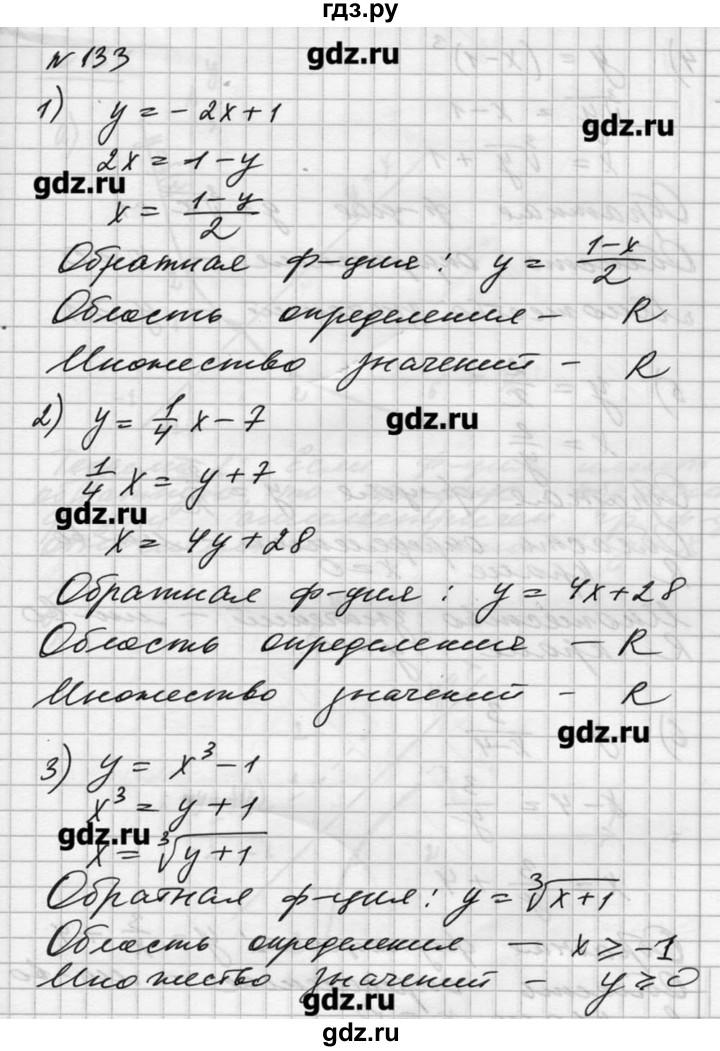 гдз.ру
№ 133
gdz.ru
1) y = - 2x + 1
gdz.ru
2x = 1 - y
gdz.ru
x = (1 - y)/2
Обратная ф-ция : y = (1 - x)/2
Область определения - R
Множество значений - R
2) y = 1/4 x - 7
gdz.ru
1/4 x = y + 7
gdz.ru
x = 4y + 28
Обратная ф-ция : y = 4x + 28
Область определения - R
Множество значений - R
gdz.ru
3) y = x³ - 1
x³ = y + 1
gdz.ru
x = ∛(y + 1)
Обратная ф-ция : y = ∛(x + 1)
Область определения - x ⩾ -1
Множество значений - y ⩾ 0
gdz.ru
gdz.ru